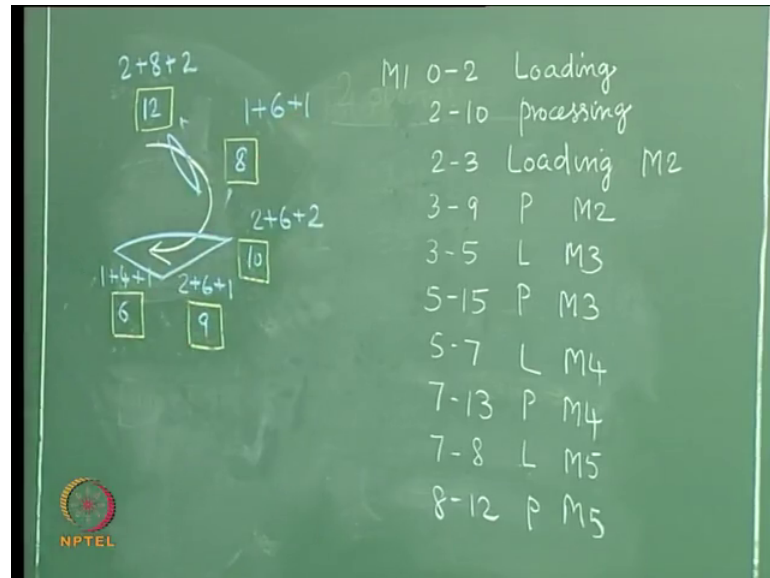 2+8+2
12
1+6+1
8
2+6+2
10
1+4+1
6
2+6+1
9
M1 0-2 Loading
2-10 processing
2-3 Loading M2
3-9 P M2
3-5 L M3
5-15 P M3
5-7 L M4
7-13 P M4
7-8 L M5
8-12 P M5
NPTEL